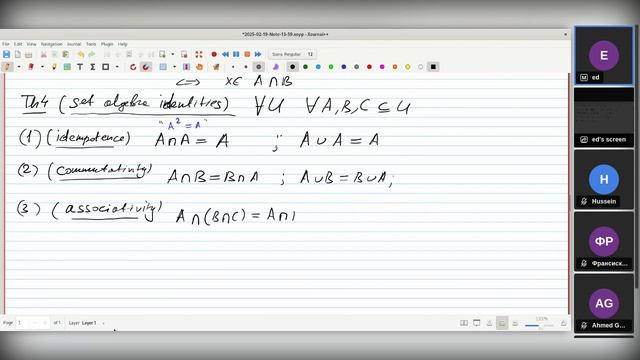 *2025-02-19-Note-13-59.xopp - Xournal++
File Edit View Navigation Journal Tools Plugin Help
Sans Regular 12
⟺ x∈ A∩B
Th4 (set algebra identities) ∀U ∀A,B,C ⊆ U
"A² = A"
(1) (idempotence) A∩A = A ; A∪A = A
(2) (commutativity) A∩B = B∩A ; A∪B = B∪A;
(3) (associativity) A∩(B∩C) = A∩
Page 1 of 1 Layer Layer 1
E
ed
ed's screen
H
Hussein
ФР
Франсиск...
AG
Ahmed G...